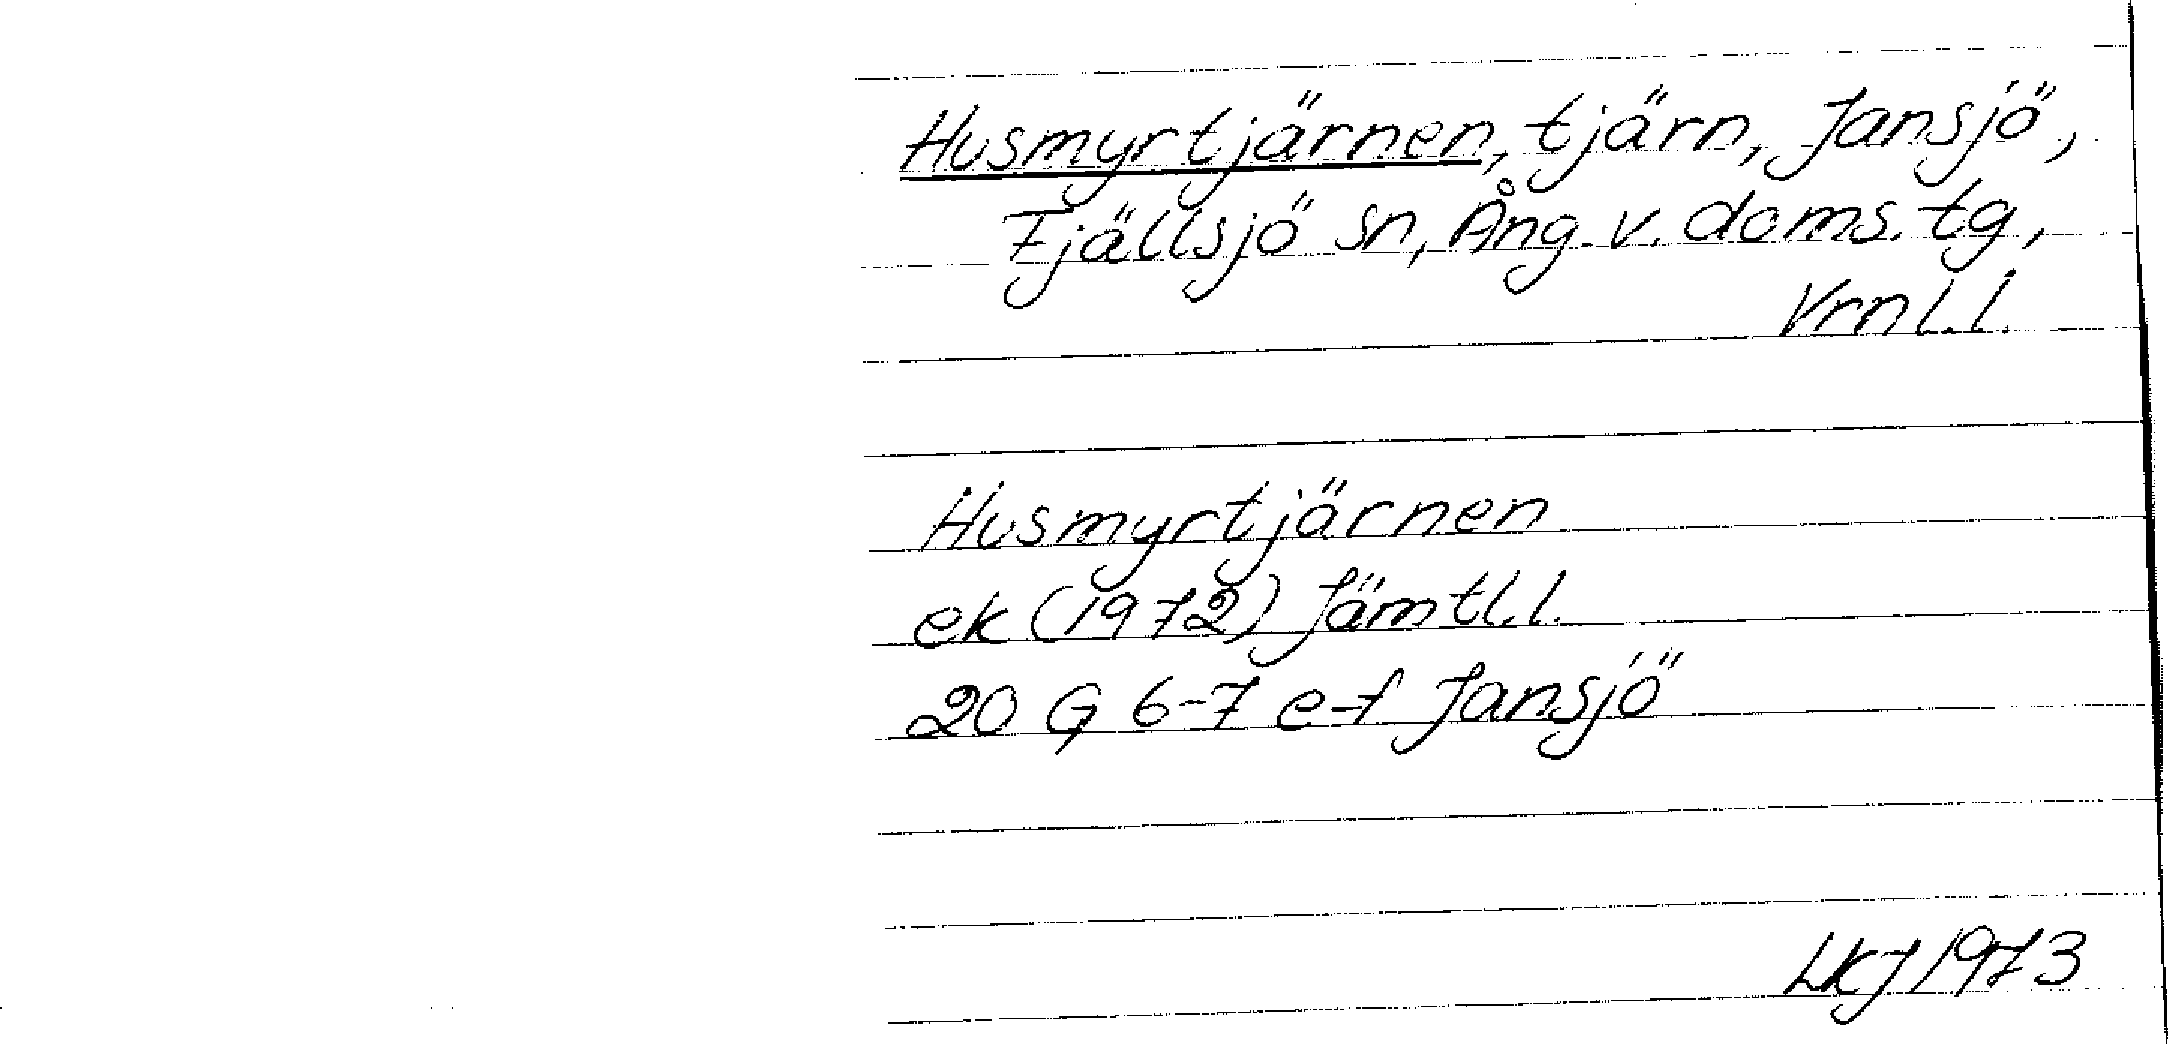 Husmyrtjärnen, tjärn, Jansjö,
Fjällsjö sn, Ång. v. doms. tg,
Vrnl.l.
Husmyrtjärnen
ek (1972) Jämtl.l.
20 G 6-7 e-f Jansjö
LKJ 1973